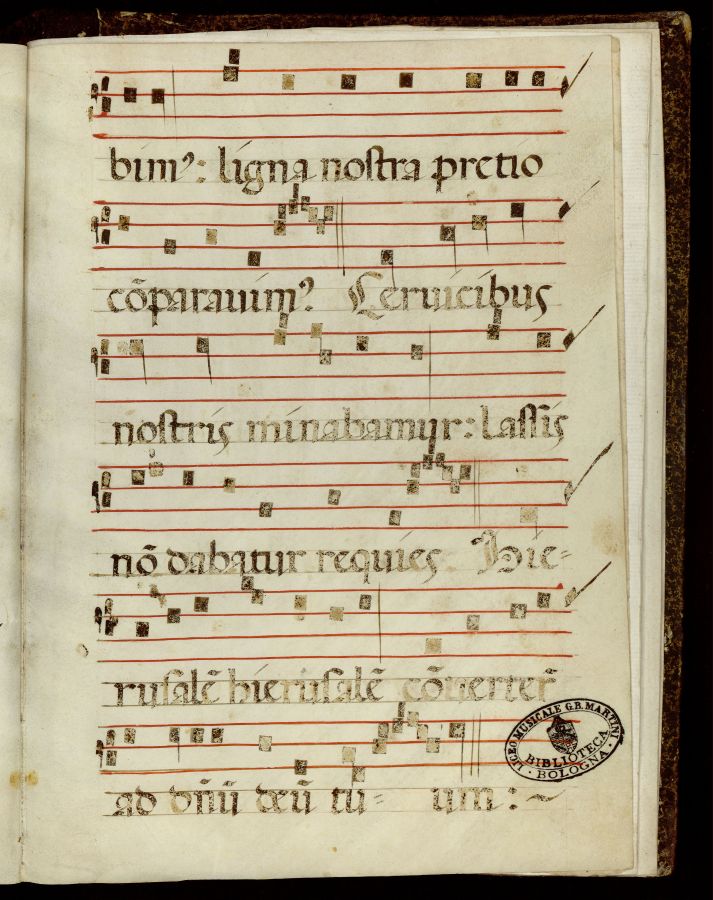 bim⁹: ligna nostra pretio
cōparauim⁹? Ceruicibus
nostris minabamur: lassis
nō dabatur requies. Hie=
rusalē hierusalē cōuerter̄
ad dn̄ū deū tu= um: ~
LICEO MUSICALE G.B. MARTINI
BIBLIOTECA
· BOLOGNA ·